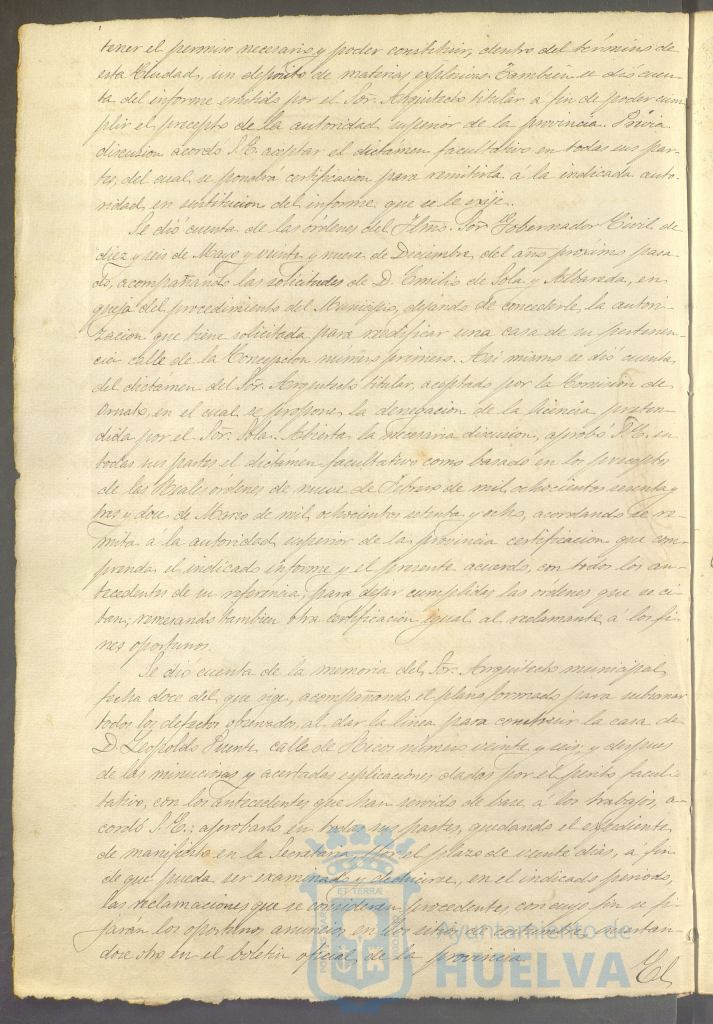 tener el permiso necesario y poder constituir, dentro del término de
esta Ciudad, un depósito de materias explosivas. Tambien se dió cuen-
ta del informe emitido por el Sor. Arquitecto titular a fin de poder cum
plir el precepto de la autoridad superior de la provincia. Prévia
discusion acordó S. E. aceptar el dictámen facultativo en todas sus par-
tes, del cual se pondrá certificacion para remitirla á la indicada auto-
ridad en sustitucion del informe que se le exije.
Se dió cuenta de las órdenes del Iltmo. Sor. Gobernador Civil de
diez y seis de Mayo y veinte y nueve de Diciembre del año próximo pasa-
do, acompañando las solicitudes de D. Emilio de Sola y Albareda, en
queja del procedimiento del Municipio, dejando de concederle la autori-
zacion que tiene solicitada para reedificar una casa de su pertenen-
cia calle de la Concepcion número primero. Asi mismo se dió cuenta
del dictamen del Sor. Arquitecto titular, aceptado por la Comision de
Ornato, en el cual se propone la denegacion de la licencia preten-
dida por el Sor. Sola. Abierta la necesaria discusion, aprobó S. E. en
todas sus partes el dictámen facultativo como basado en los preceptos
de las Reales órdenes de nueve de Febrero de mil ochocientos sesenta y
tres y doce de Marzo de mil ochocientos setenta y ocho, acordando se re-
mita a la autoridad superior de la provincia certificacion que com-
prenda el indicado informe y el presente acuerdo, con todos los an-
tecedentes de su referencia, para dejar cumplidas las órdenes que se ci-
tan; remesando tambien otra certificacion igual al reclamante á los fi-
nes oportunos.
Se dió cuenta de la memoria del Sor. Arquitecto municipal,
fecha doce del que rige, acompañando el plano formado para subsanar
todos los defectos observados al dar la línea para construir la casa de
D. Leopoldo Puente calle de Ricos número veinte y seis, y despues
de las minuciosas y acertadas esplicaciones dadas por el perito facul-
tativo, con los antecedentes que han servido de base á los trabajos, a-
cordó S. E.: aprobarlo en todas sus partes, quedando el espediente
de manifiesto en la Secretaria por el plazo de veinte dias, a fin
de que pueda ser examinado y deducirse, en el indicado periodo,
las reclamaciones que se consideren procedentes, con cuyo fin se fi-
jaran los oportunos anuncios en los sitios de costumbre, insertan-
dose otro en el boletin oficial de la provincia.
El
Ayuntamiento de
HUELVA